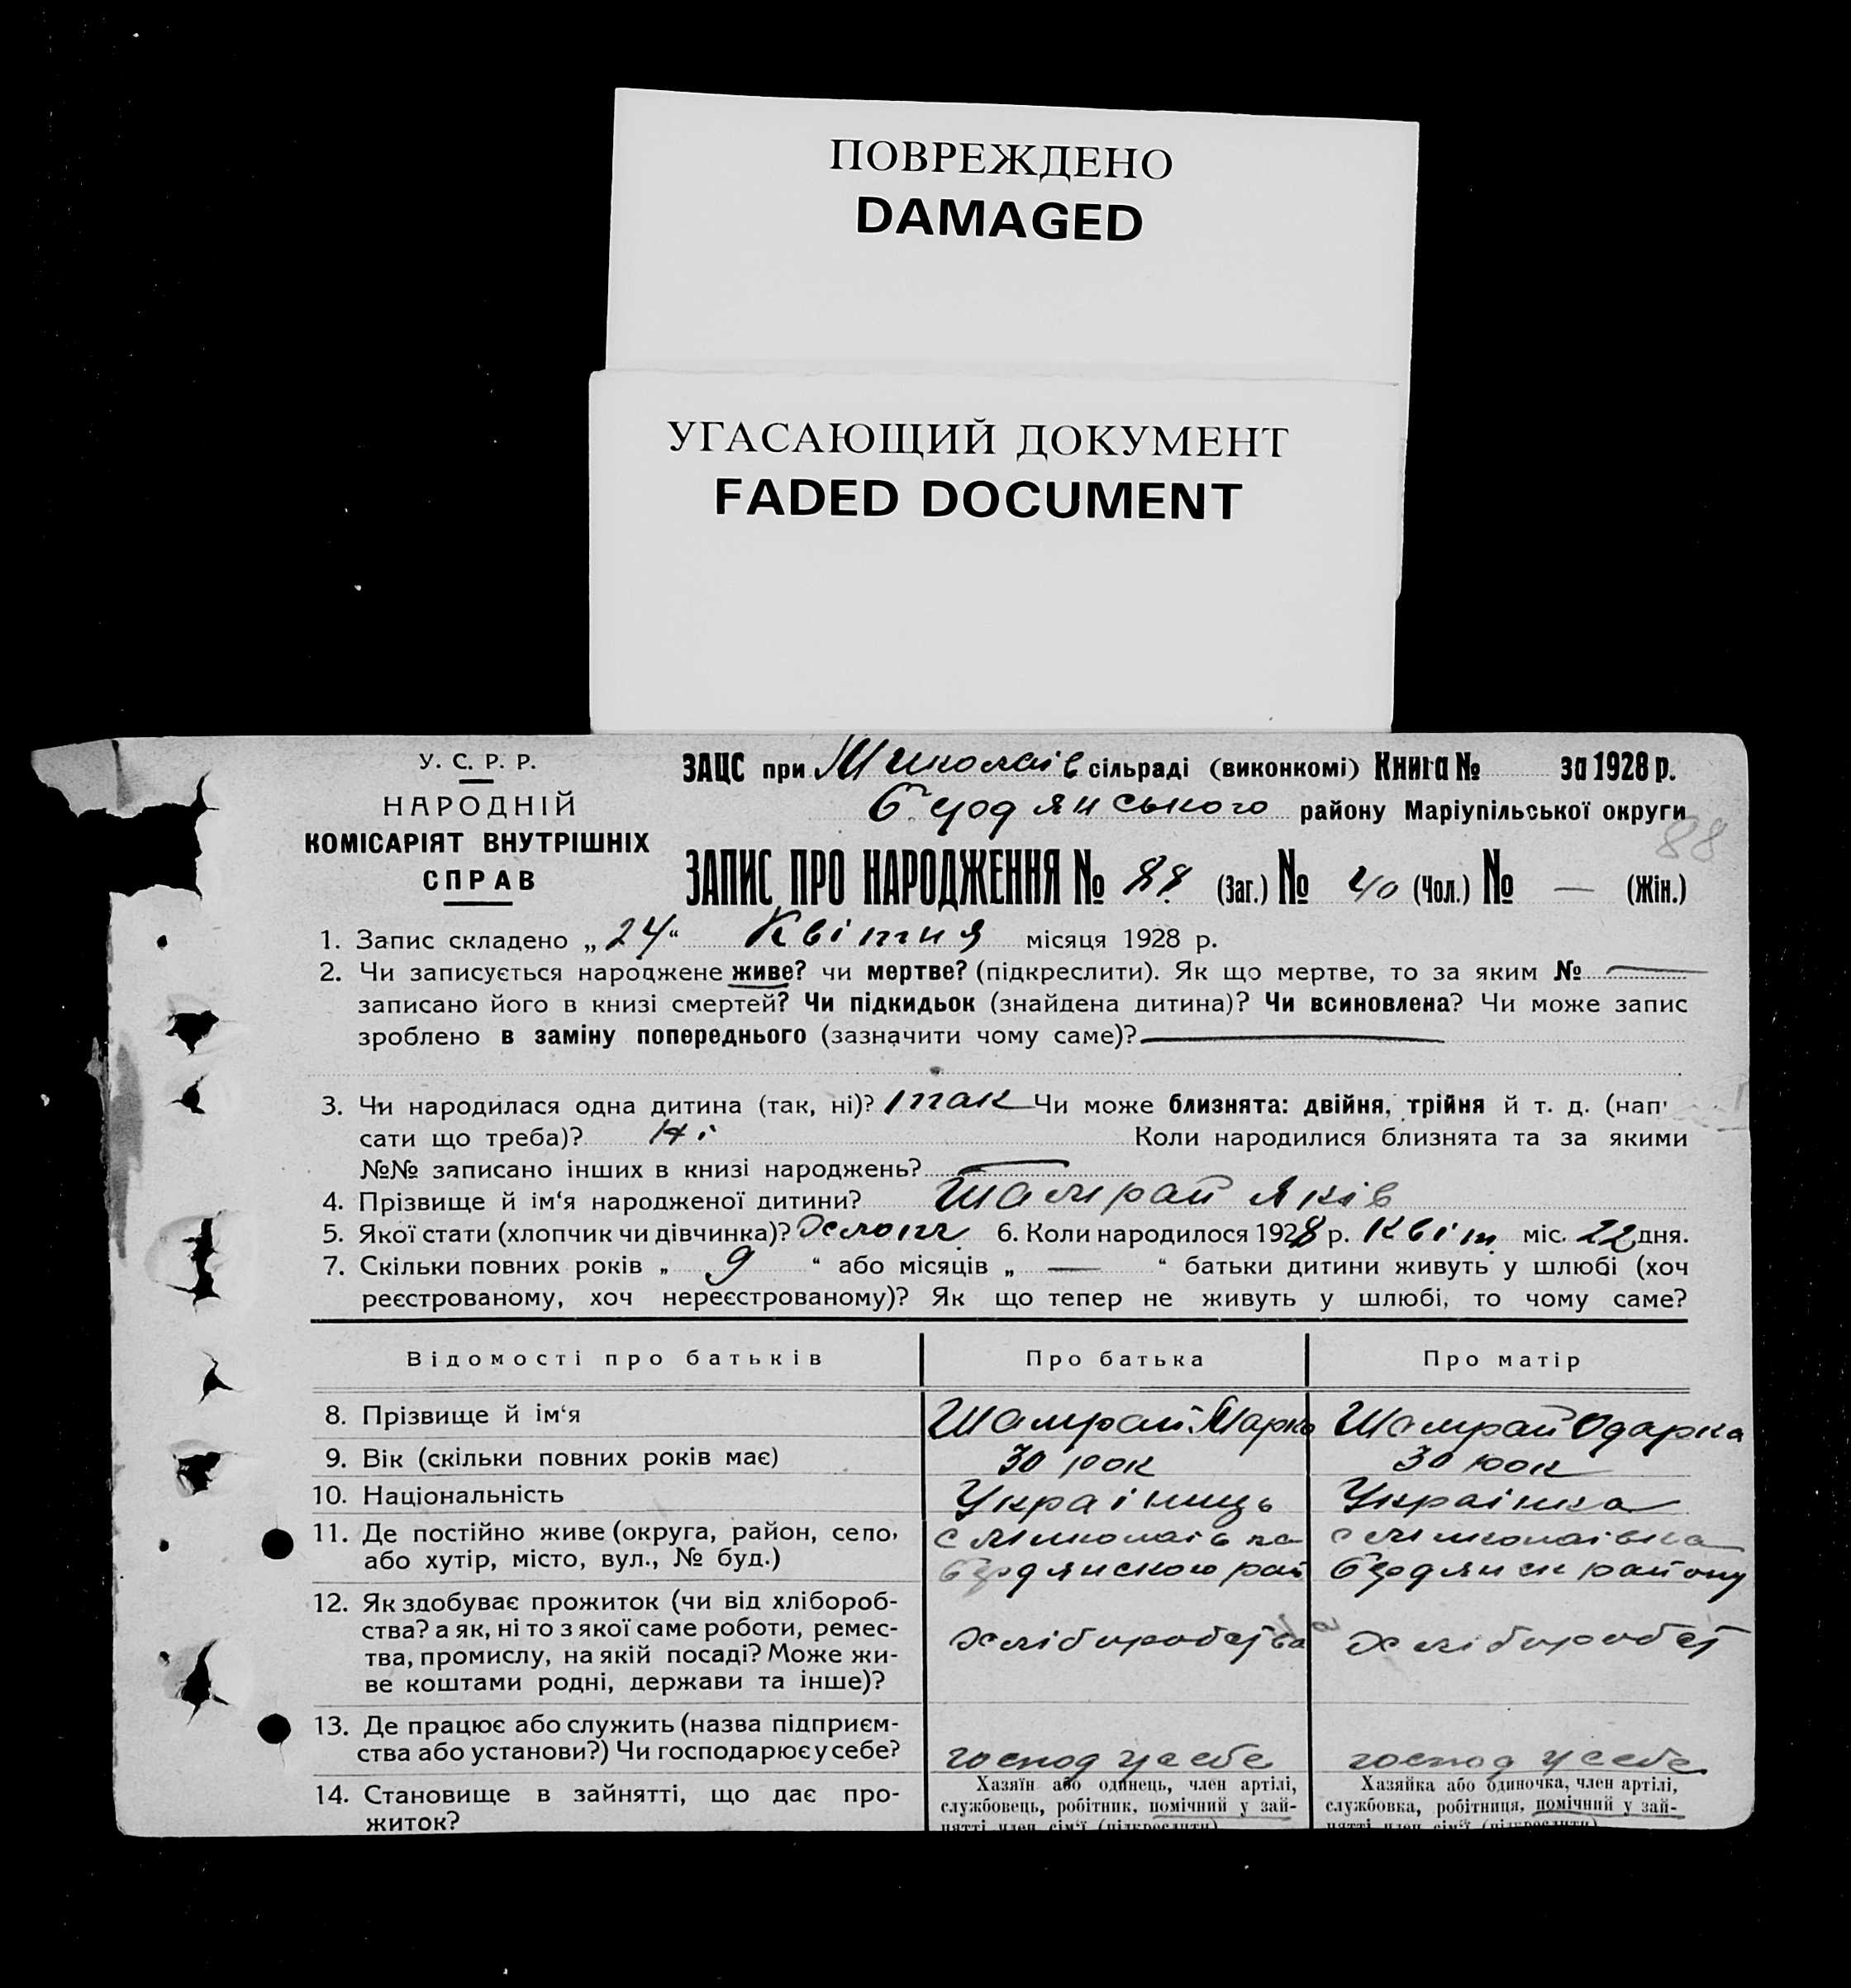 ПОВРЕЖДЕНО
DAMAGED
УГАСАЮЩИЙ ДОКУМЕНТ
FADED DOCUMENT
У. С. Р. Р.
НАРОДНІЙ
КОМІСАРІЯТ ВНУТРІШНІХ
СПРАВ
ЗАЦС при Миколаів сільраді (виконкомі) Книга № за 1928 р.
району Маріупільської округи
88
ЗАПИС ПРО НАРОДЖЕННЯ № 88 (Заг.) № 40 (Чол.) № — (Жін.)
1. Запис складено „24“ Квітня місяця 1928 р.
2. Чи записується народжене живе? чи мертве? (підкреслити). Як що мертве, то за яким № —
записано його в книзі смертей? Чи підкидьок (знайдена дитина)? Чи всиновлена? Чи може запис
зроблено в заміну попереднього (зазначити чому саме)? —
3. Чи народилася одна дитина (так, ні)? так Чи може близнята: двійня, трійня й т. д. (нап'
сати що треба)? Ні Коли народилися близнята та за якими
№№ записано інших в книзі народжень? —
4. Прізвище й ім‘я народженої дитини? Шамрай Яків
5. Якої стати (хлопчик чи дівчинка)? Хлопч. 6. Коли народилося 1928 р. Квіт. міс. 22 дня.
7. Скільки повних років „ 9 “ або місяців „ — “ батьки дитини живуть у шлюбі (хоч
реєстрованому, хоч нереєстрованому)? Як що тепер не живуть у шлюбі, то чому саме?
Відомості про батьків Про батька Про матір
8. Прізвище й ім‘я Шамрай Марко Шамрай Одарка
9. Вік (скільки повних років має) 30 рок 30 рок
10. Національність Украіниць Украінка
11. Де постійно живе (округа, район, село, с Миколаівка с Миколаівка
або хутір, місто, вул., № буд.) рай району
12. Як здобуває прожиток (чи від хлібороб-
ства? а як, ні то з якої саме роботи, ремес-
тва, промислу, на якій посаді? Може жи-
ве коштами родні, держави та інше)?
13. Де працює або служить (назва підприєм-
ства або установи?) Чи господарює у себе? господ у себе господ у себе
14. Становище в зайнятті, що дає про-
житок?
Хазяїн або одинець, член артілі,
службовець, робітник, помічний у зай-
нятті член сім'ї (підкреслити)
Хазяйка або одиночка, член артілі,
службовка, робітниця, помічний у зай-
нятті член сім'ї (підкреслити)